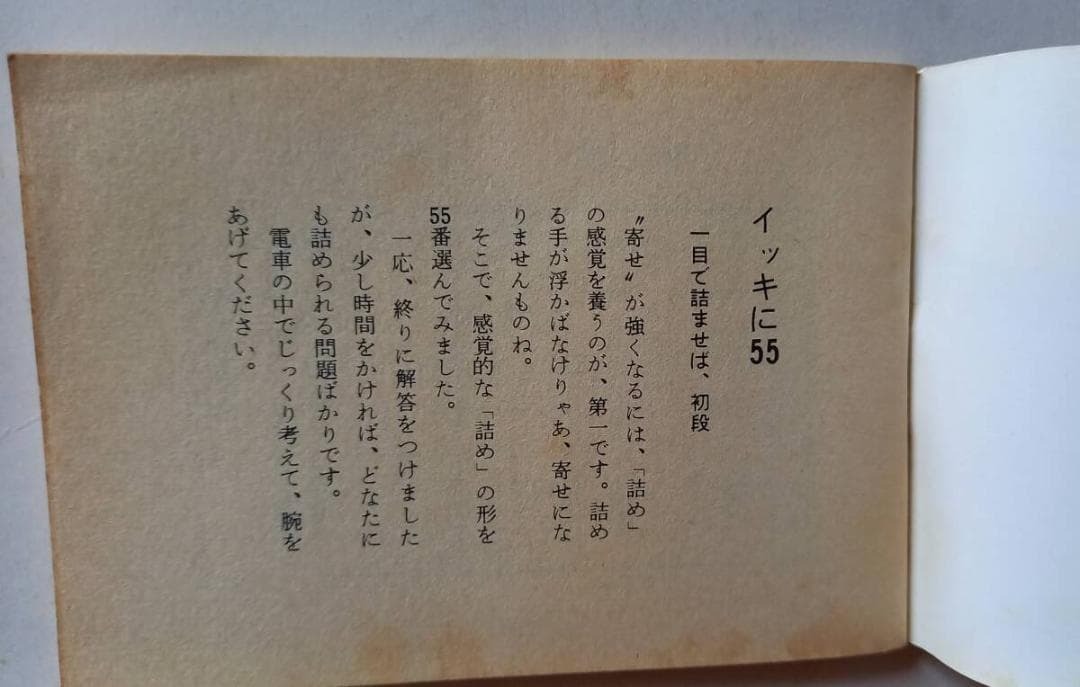 イッキに55
一目で詰ませば、初段
〝寄せ〟が強くなるには、「詰め」
の感覚を養うのが、第一です。詰め
る手が浮かばなけりゃあ、寄せにな
りませんものね。
そこで、感覚的な「詰め」の形を
55番選んでみました。
一応、終りに解答をつけました
が、少し時間をかければ、どなたに
も詰められる問題ばかりです。
電車の中でじっくり考えて、腕を
あげてください。